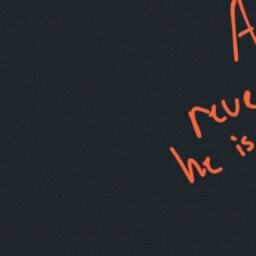 A
reve
he is